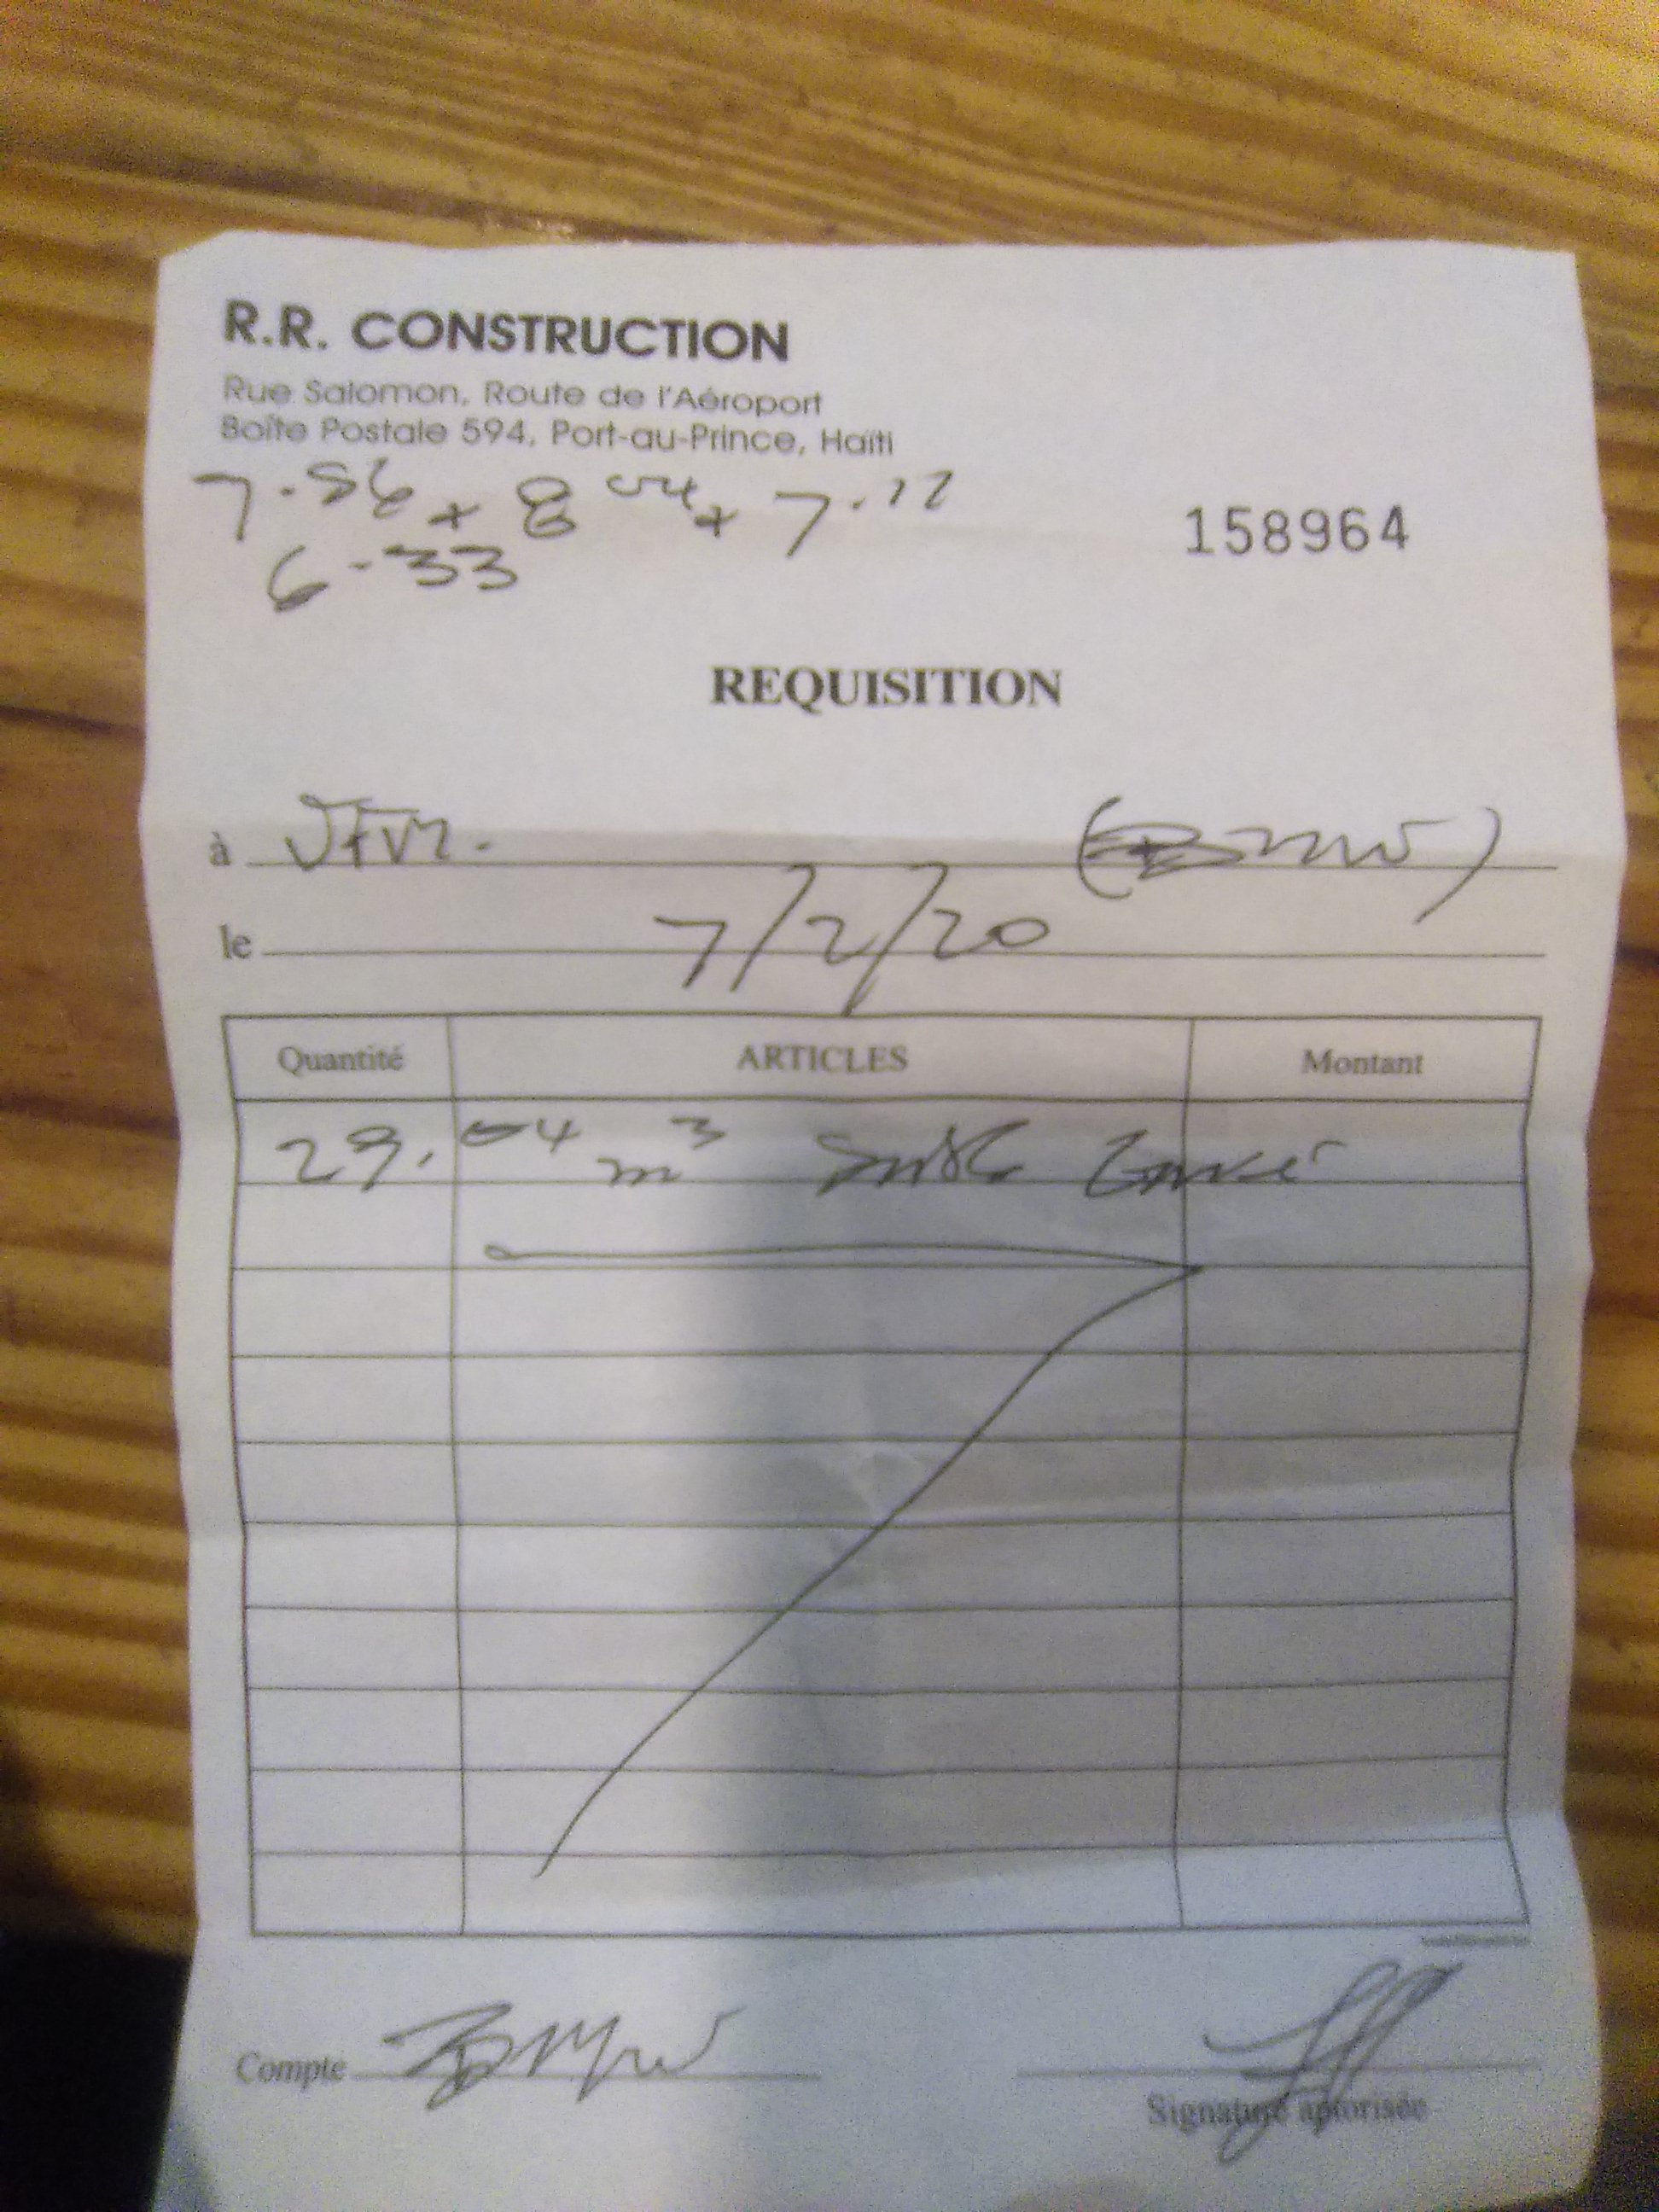 R.R. CONSTRUCTION
Rue Salomon, Route de l'Aéroport
Boîte Postale 594, Port-au-Prince, Haïti
7.56 + 8 04 + 7.12
6.33
158964
REQUISITION
à JFVM.
le 7/2/20
Quantité ARTICLES Montant
29.04 m³ Sable Lavé
Compte
Signature autorisée